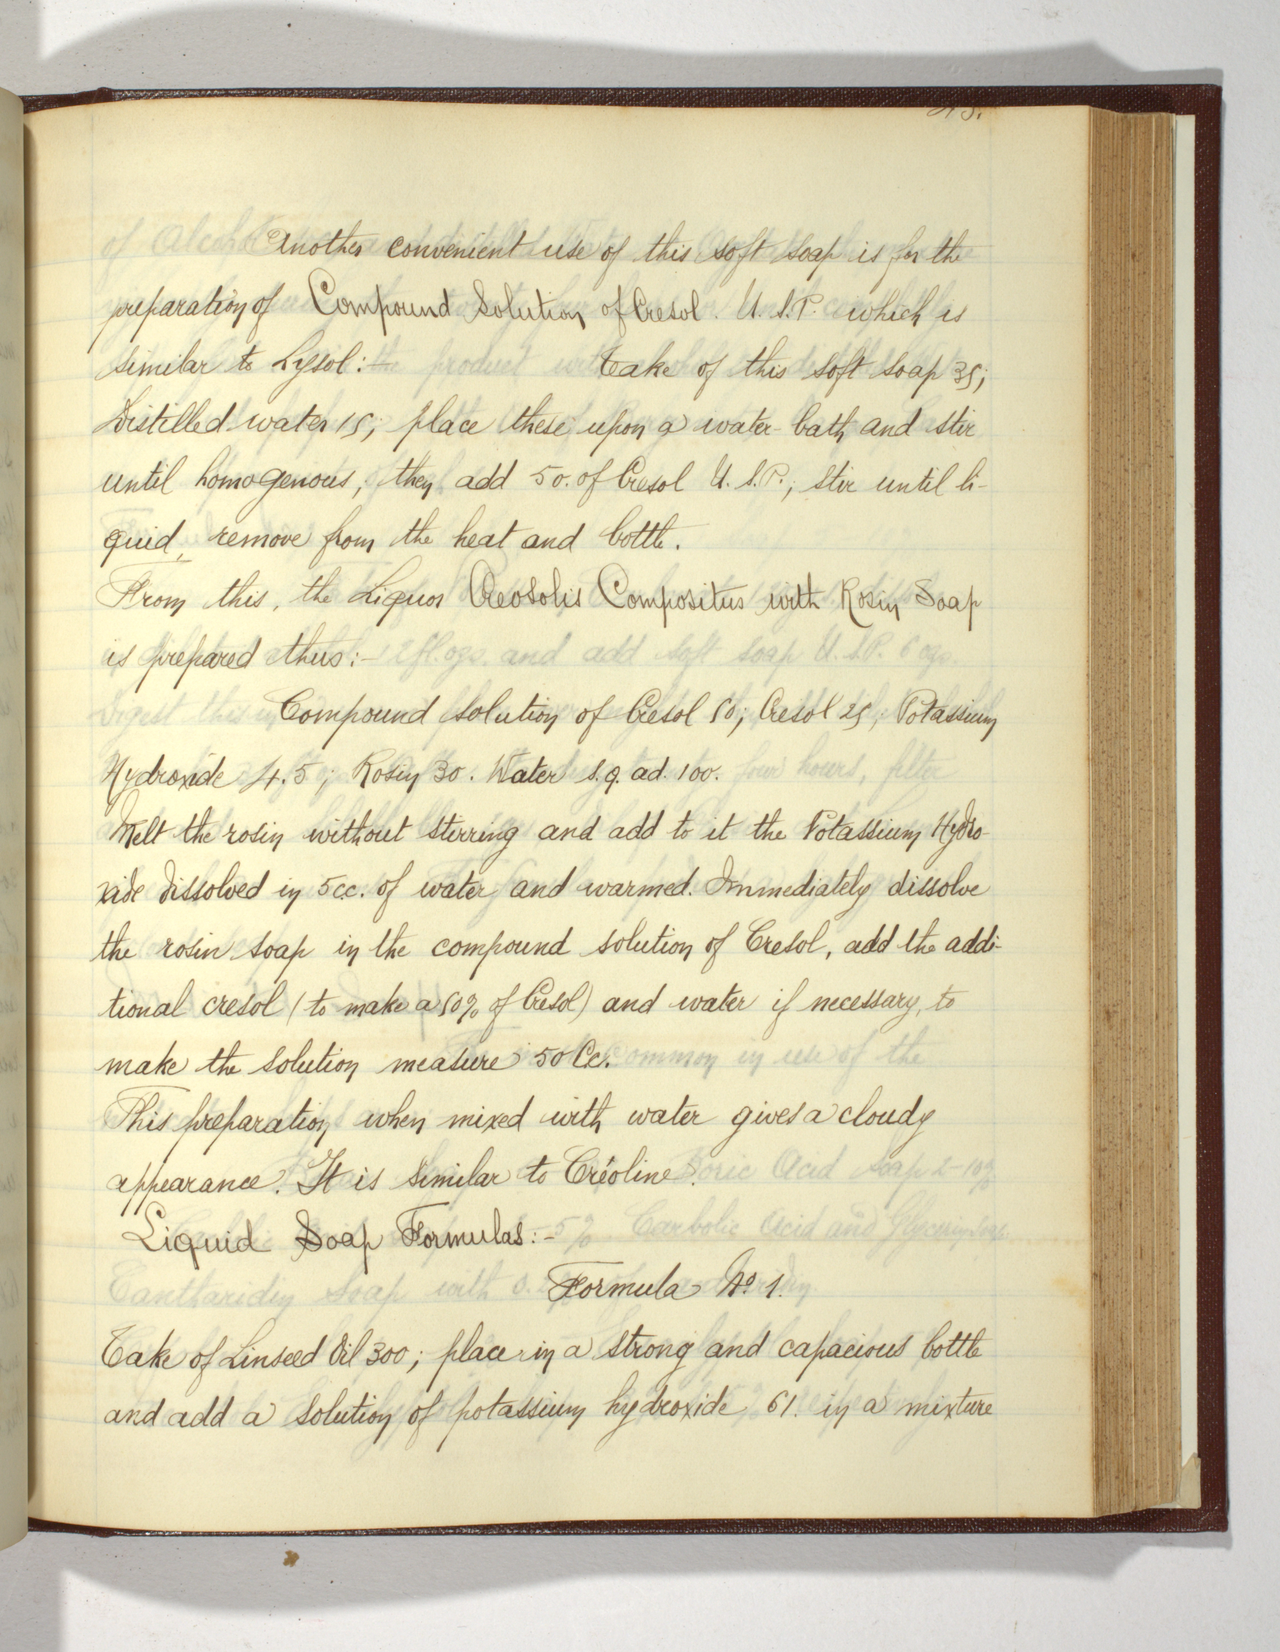 Another convenient use of this soft soap is for the
preparation of Compound Solution of Cresol. U. S. P. which is
similar to Lysol:— Take of this soft soap 35;
Distilled water 15; place these upon a water-bath and stir
until homogenous; then add 50. of Cresol U. S. P.; stir until li-
quid, remove from the heat and bottle.
From this, the Liquor Creosolis Compositus with Rosin Soap
is prepared thus:—
Compound solution of Cresol 50; Cresol 25; Potassium
Hydroxide 4.5; Rosin 30. Water s.q. ad. 100.
Melt the rosin without stirring and add to it the Potassium Hydro-
xide dissolved in 5cc. of water and warmed. Immediately dissolve
the rosin soap in the compound solution of Cresol, add the addi-
tional cresol (to make a 50% of Cresol) and water if necessary, to
make the solution measure 50 Cc.
This preparation when mixed with water gives a cloudy
appearance. It is similar to Créoline.
Liquid Soap Formulas:—
Formula No. 1.
Take of Linseed Oil 300; place in a strong and capacious bottle
and add a solution of potassium hydroxide 61. in a mixture